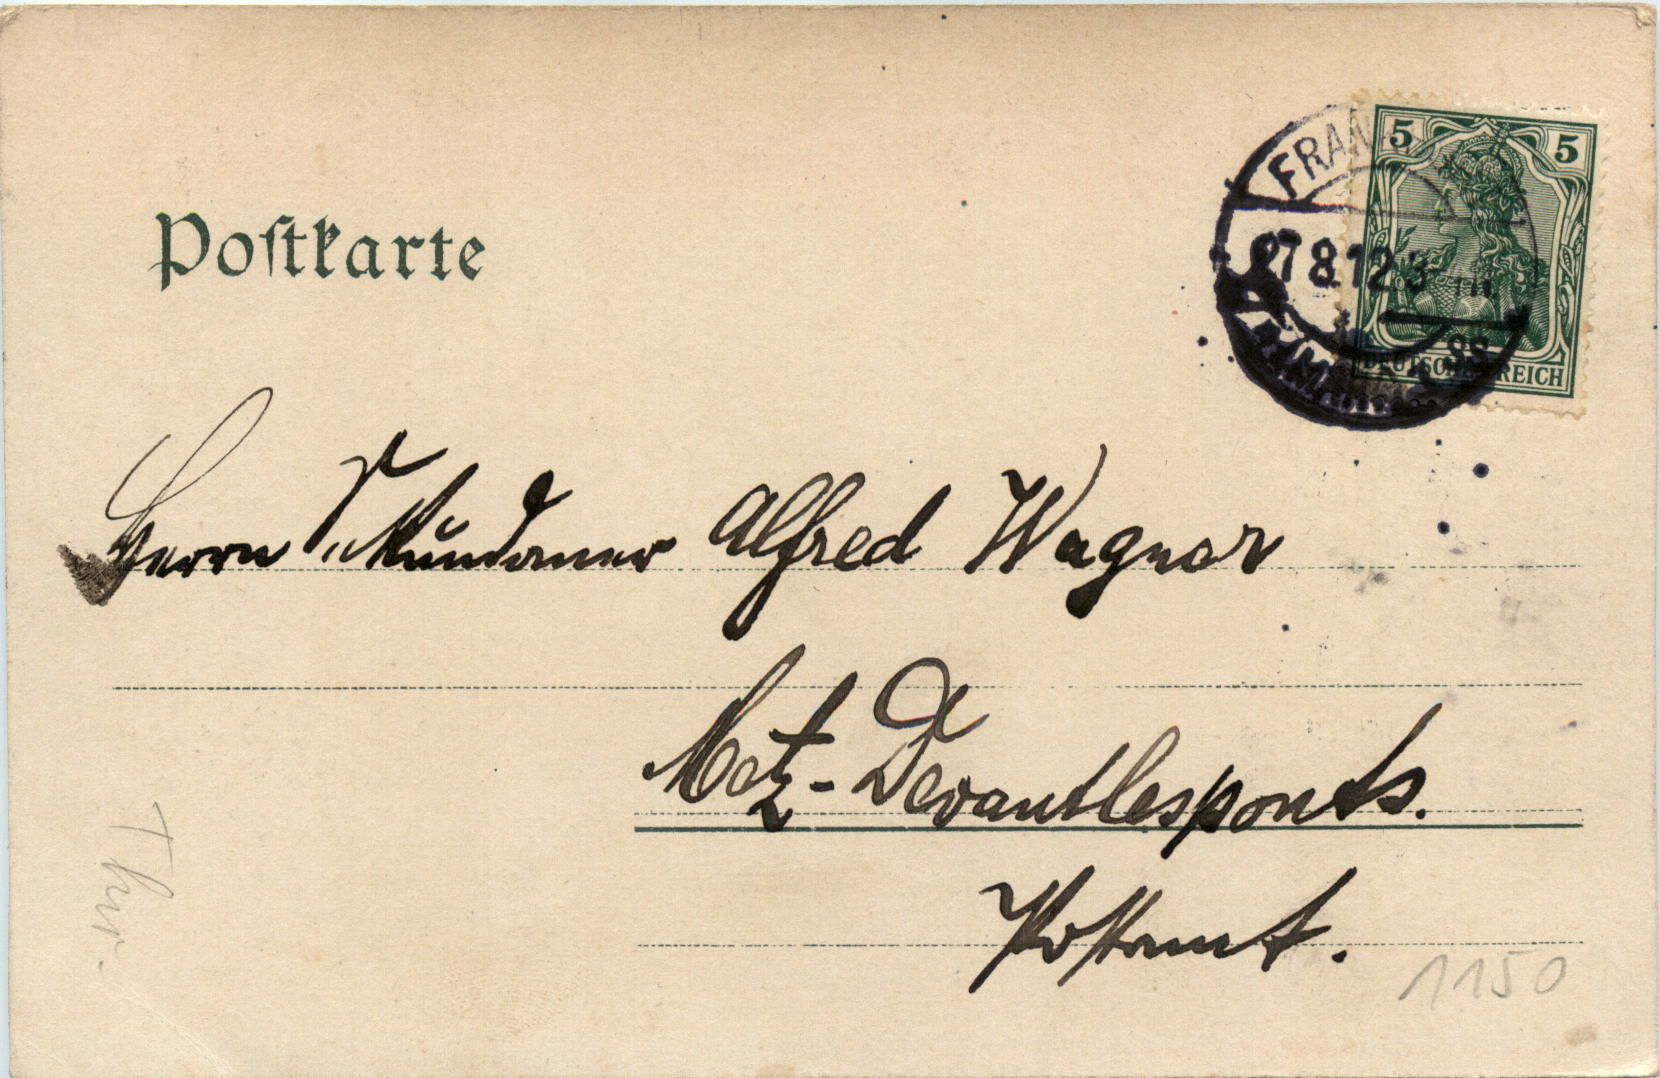 Postkarte
5 5
FRAN
27.8.12.3-
DEUTSCHES REICH
Herrn Alfred Wagner
Metz-Devantlesponts.
Postamt.
Thür.
1150